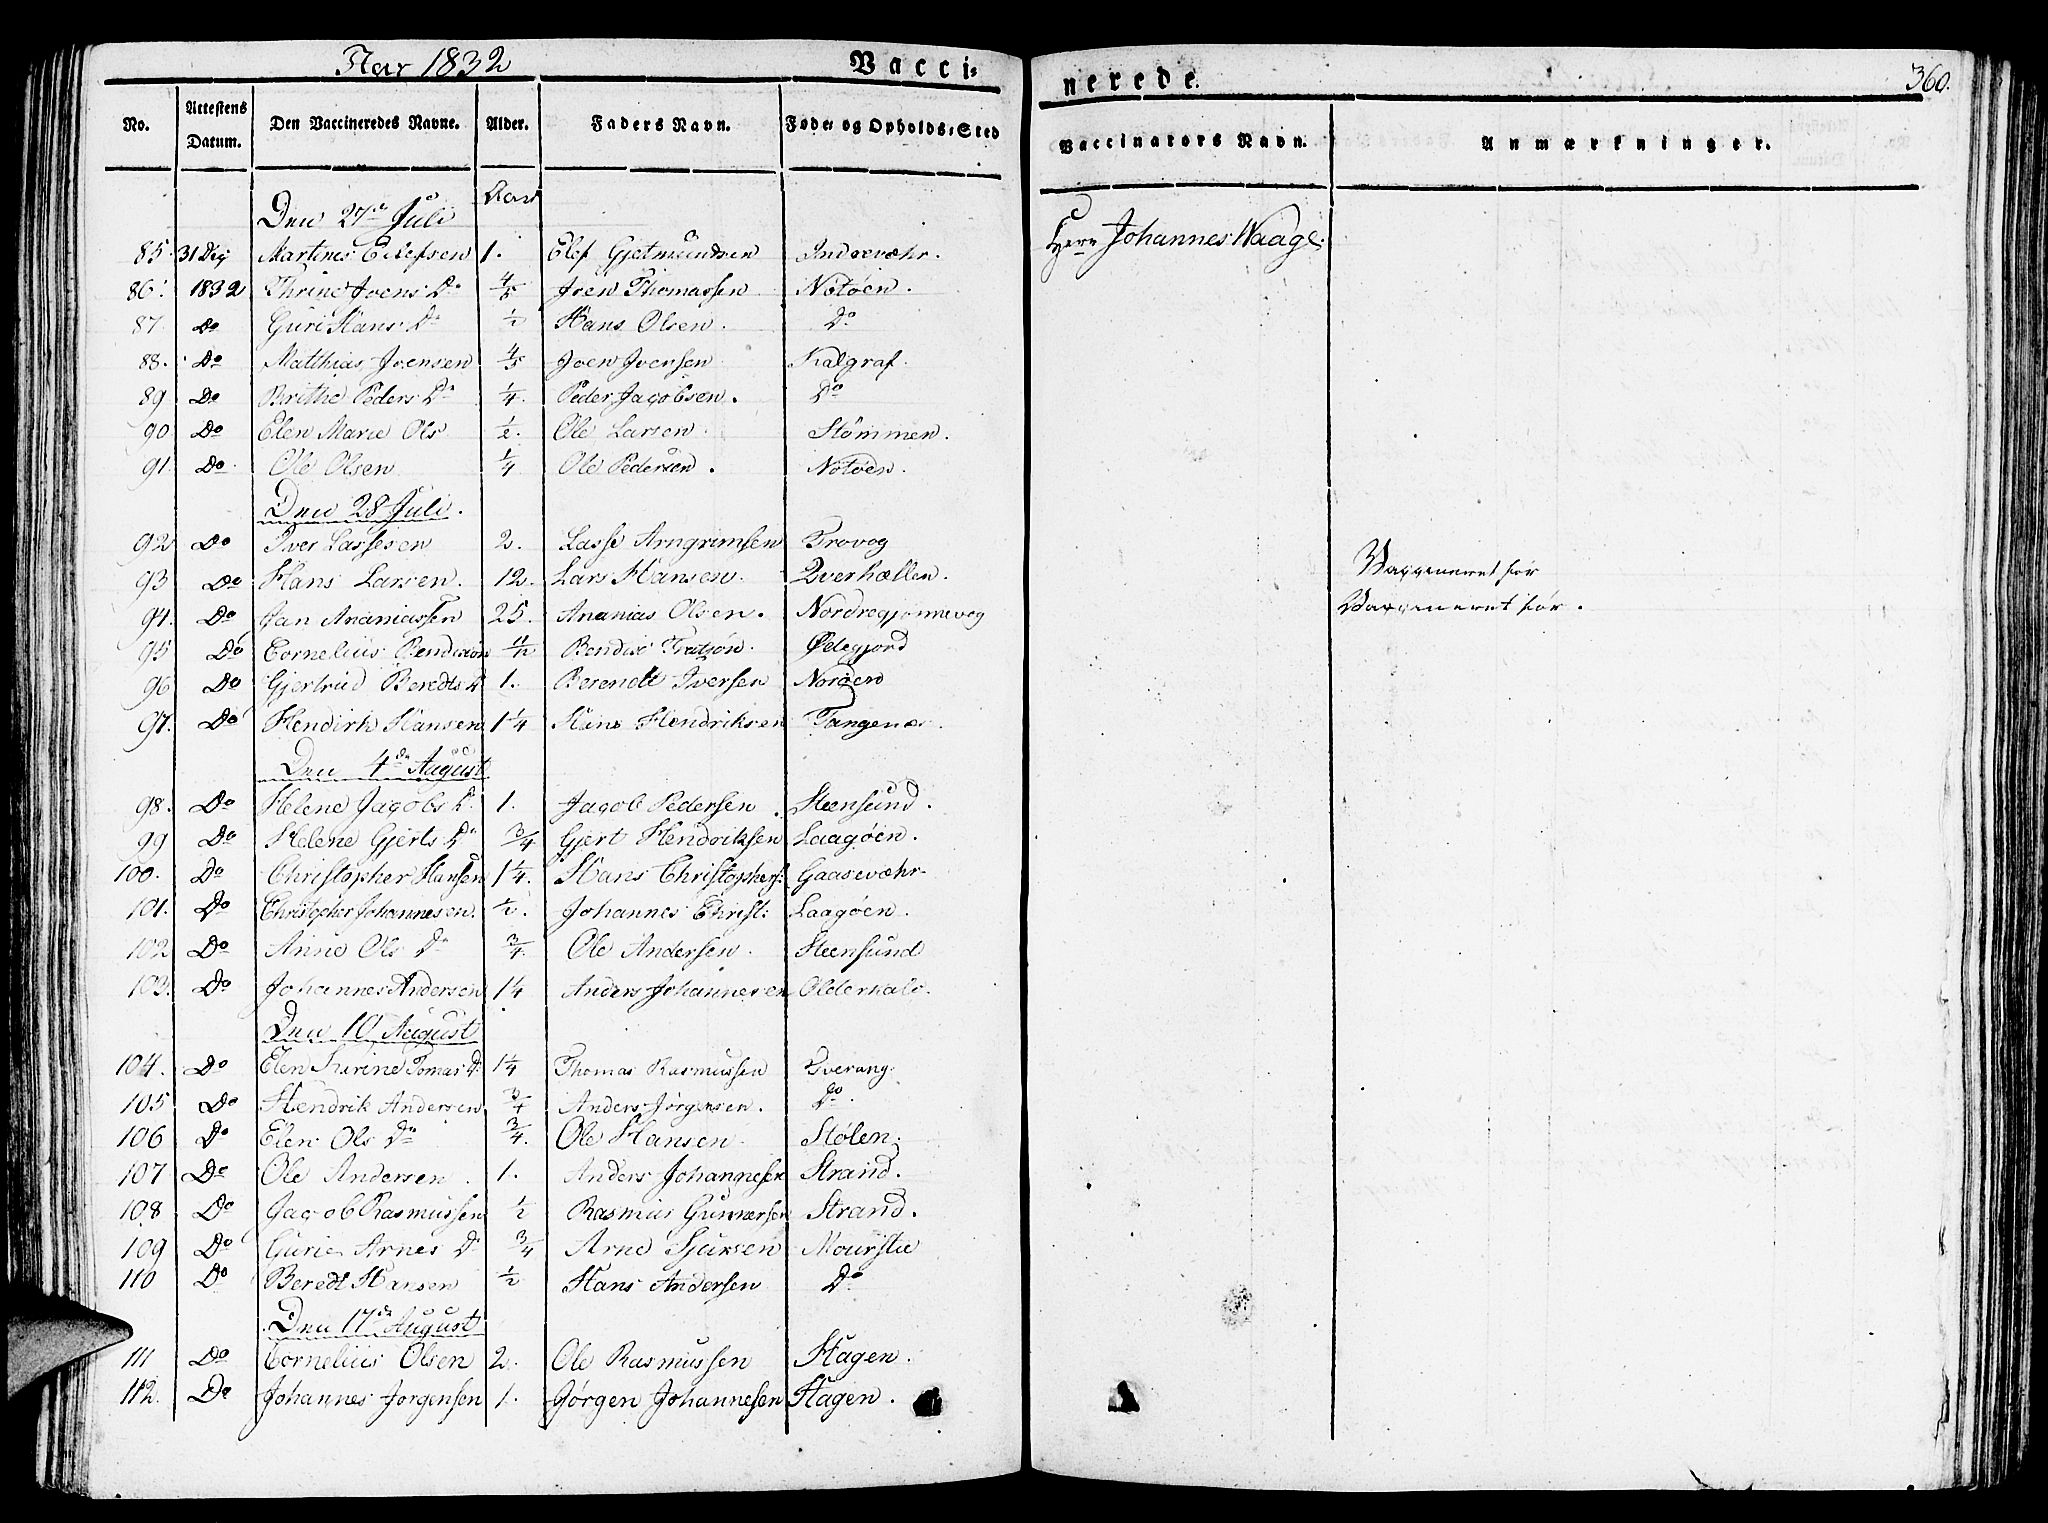 Aar 1832 Vacci-
nerede. 360.
No. Attestens Datum. Den Vaccineredes Navne. Alder. Faders Navn. Føde- og Opholds-Sted Vaccinators Navn. Anmærkninger.
Aar
Den 27de Juli
85. 31 Dec Martines Elefsen 1. Elef Gjetmundsen Indrevæhr. Herr Johannes Waage.
86. 1832 Thrine Joens Dr 4/5 Joen Thomassen Notøen.
87. Do Guri Hans Dr 1/2 Hans Olsen. Do
88. Do Matthias Joensen 4/5 Joen Joensen Kalgraf.
89 Do Brithe Peders Dr 1/4. Peder Jacobsen. Do
90 Do Elen Marie Ols 1/2. Ole Larsen. Stømmen.
91. Do Ole Olsen 1/4 Ole Pedersen. Notøen.
Den 28 Juli.
92 Do Iver Lassesen 2. Lasse Arngrimsen Trovog
93 Do Hans Larsen. 12. Lars Hansen. Qverhællen. Vaccineret før
94. Do Jan Ananiassen 25. Ananias Olsen. Nordregjønnevog Vaccineret før.
95 Do Cornelius Bendixen 11/12 Bendix Ødegjord
96 Do Gjertrud Beredts D 1. Berendt Iversen Norøen
97. Do Hendirk Hansen 1 1/4 Hans Hendriksen Tangenæs.
Den 4de August
98. Do Helene Jacobs D. 1. Jacob Pedersen. Steensund.
99 Do Helene Gjerts Dr 3/4 Gjert Hendriksen Laagøen.
100. Do Christopher Hansen 1 1/4. Hans Christophers: Gaasevæhr
101. Do Christopher Johannesen. 1/2. Johannes Christ: Laagøen.
102 Do Anne Ols Dr 3/4. Ole Andersen. Steensund
103. Do Johannes Andersen 1 1/4 Anders Johannesen
Den 10 August
104. Do Elen Tomas D. 1 1/4 Thomas Rasmussen
105 Do Hendrik Andersen 3/4 Anders Jørgensen. Do.
106 Do Elen Ols Dr 3/4. Ole Hansen. Stølen.
107 Do Ole Andersen. 1. Anders Johannesen Strand.
108 Do Jacob Rasmussen 1/2 Rasmus Gunnersen Strand.
109 Do Gurie Arnes D 3/4 Arne Sjursen
110 Do Beredt Hansen 1/2 Hans Andersen Do
Den 17de August
111 Do Cornelius Olsen 2. Ole Rasmussen Hagen.
112. Do Johannes Jørgensen 1. Jørgen Johannesen Hagen.